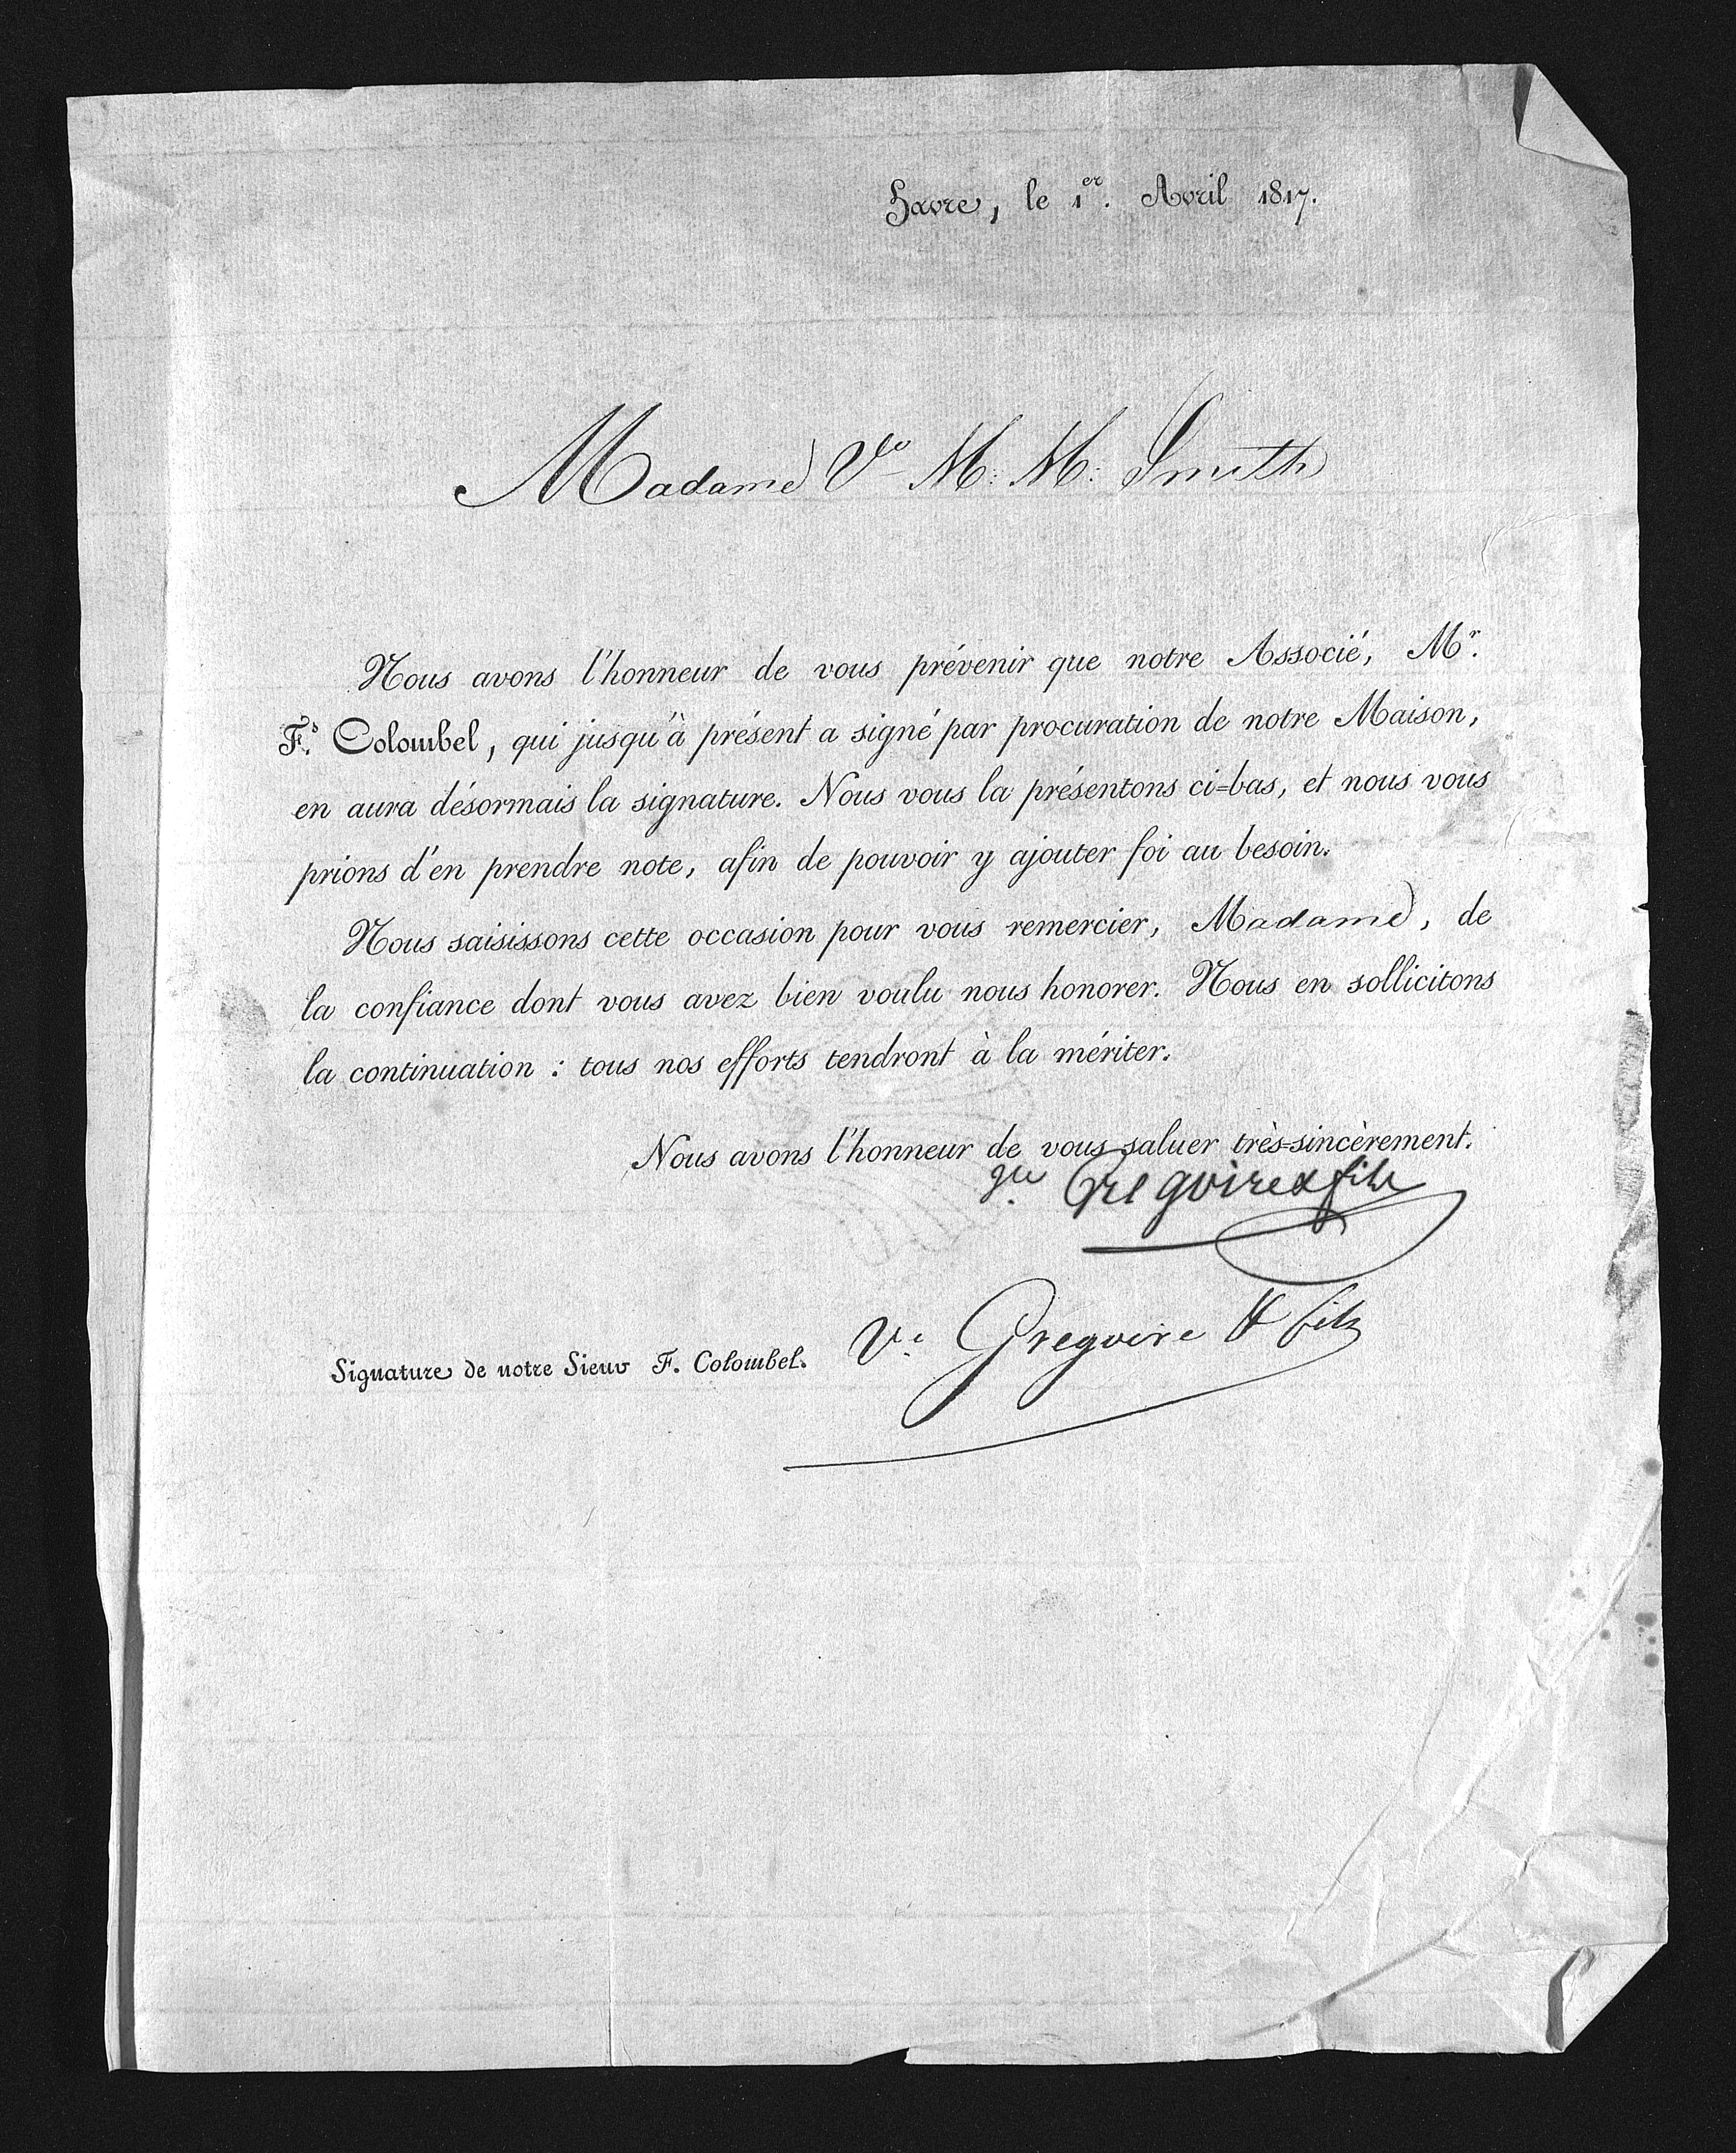 Havre, le 1er. Avril 1817.
Madame Ve M: M: Smith
Nous avons l'honneur de vous prévenir que notre Associé, Mr.
Fs. Colombel, qui jusqu'à présent a signé par procuration de notre Maison,
en aura désormais la signature. Nous vous la présentons ci=bas, et nous vous
prions d'en prendre note, afin de pouvoir y ajouter foi au besoin.
Nous saisissons cette occasion pour vous remercier, Madame, de
la confiance dont vous avez bien voulu nous honorer. Nous en sollicitons
la continuation : tous nos efforts tendront à la mériter.
Nous avons l'honneur de vous saluer très=sincèrement.
Gregoire & fils
Signature de notre Sieur F. Colombel. Ve. Gregoire & fils